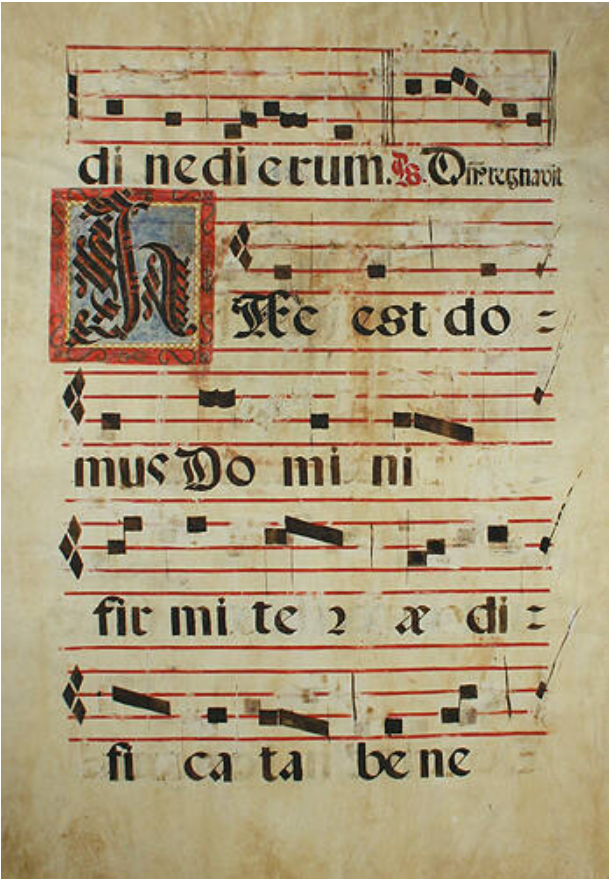 di nedi erum. Ps. Dñs regnavit
HÆc est do=
mus Do mi ni
fir mi te r æ di=
fi ca ta bene